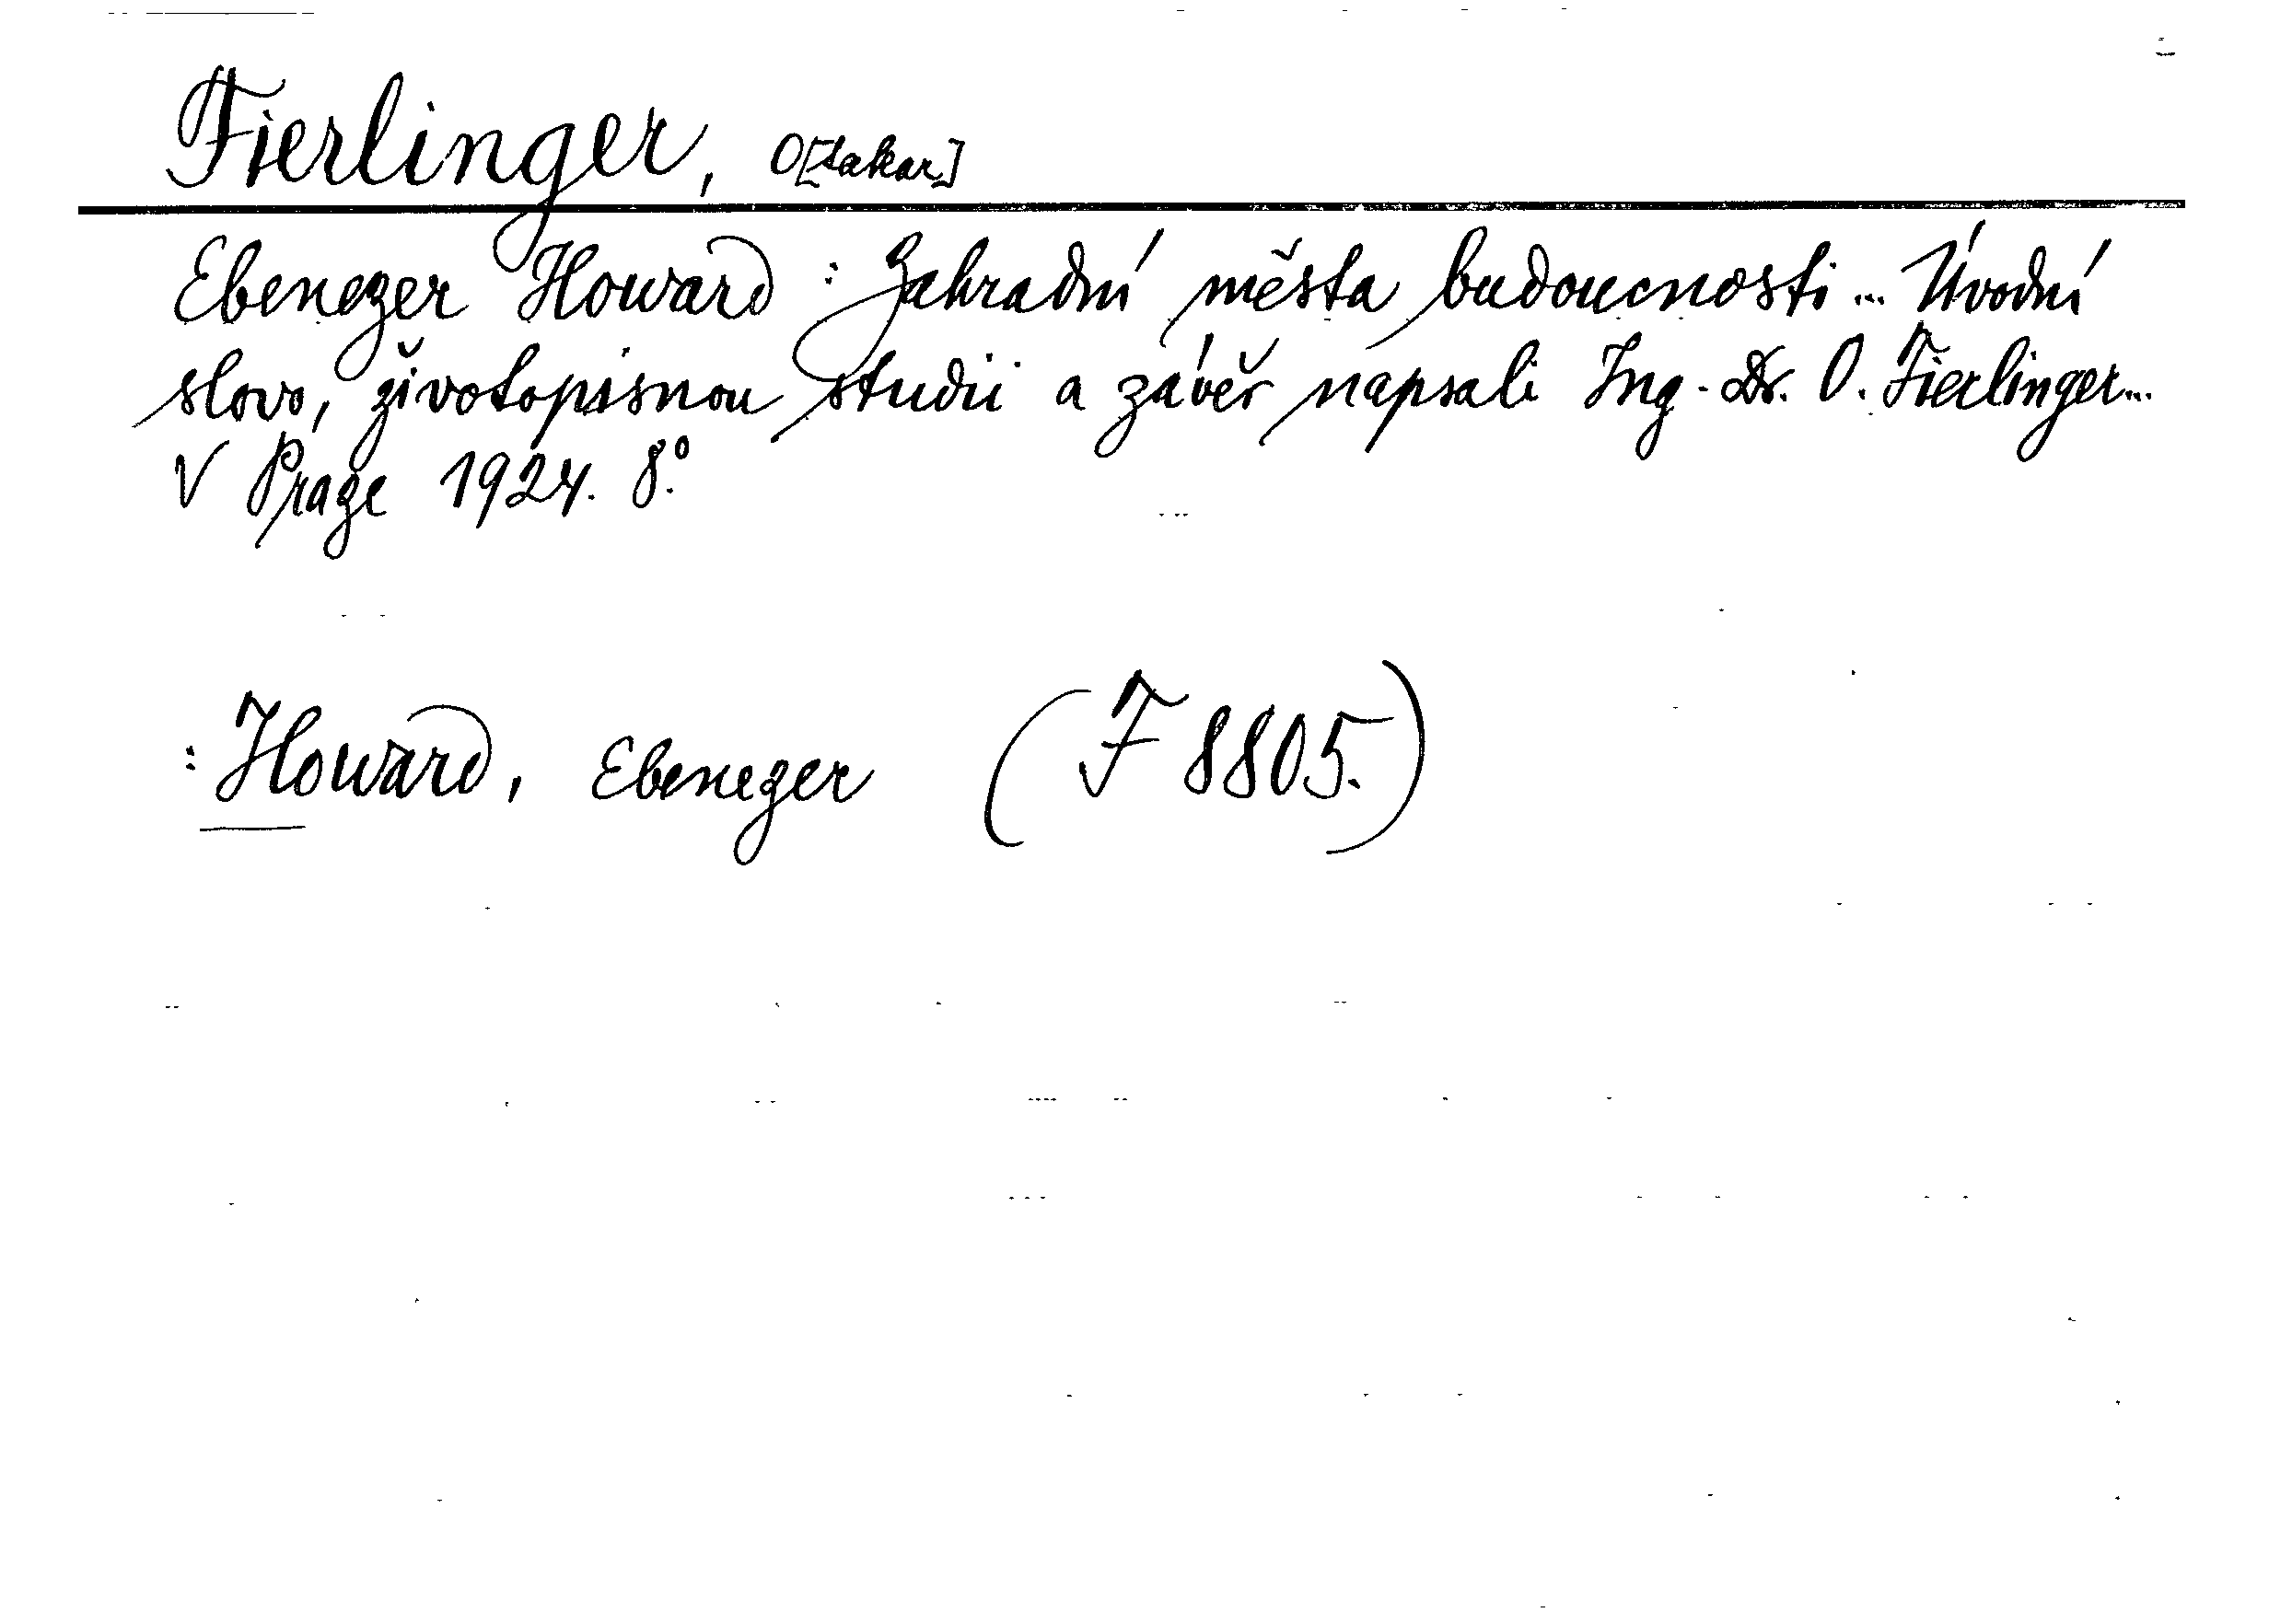 Fierlinger, O[takar]
Ebenezer Howard : Zahradní města budoucnosti ... Úvodní
slovo, životopisnou studii a závěr napsali Ing. Dr. O. Fierlinger...
V Praze 1924. 8°.
: Howard, Ebenezer (F 8805.)